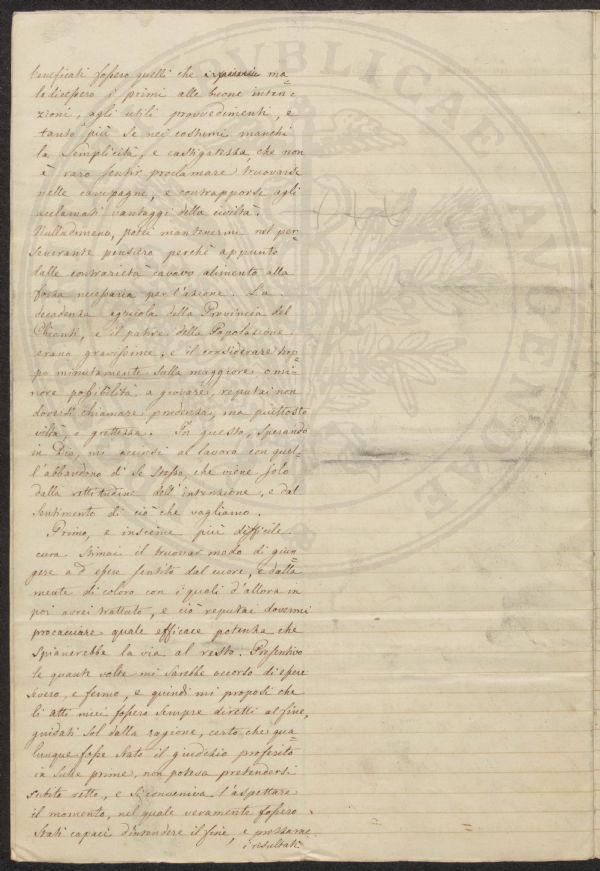 beneficati fossero quelli che ma=
ledicessero i primi alle buone inten=
zioni, agli utili provvedimenti, e
tanto più se nei costumi manchi
la semplicità, e castigatezza, che non
è raro sentir proclamare truovarsi
nelle campagne, e contrapporsi agli
acclamati vantaggi della civiltà.
Nulladimeno, potei mantenermi nel per=
severante pensiero perchè appunto
dalle contrarietà cavavo alimento alla
forza necessaria per l'azione. La
decadenza agricola della Provincia del
Chianti, e il patire della Popolazione
erano gravissime, e il considerare trop=
po minutamente sulla maggiore, o mi=
nore possibilità a giovare, reputai non
doversi chiamare prudenza, ma piuttosto
viltà, o grettezza. In questo, sperando
in Dio, mi accinsi al lavoro con quel=
l'abbandono di se stesso, che viene solo
dalla rettitudine dell'intenzione, e dal
sentimento di ciò che vagliamo.
Primo, e insieme più difficile
cura stimai il truovar modo di giun=
gere ad esser sentito dal cuore, e dalla
mente di coloro con i quali d'allora in
poi avrei trattato, e ciò reputai dovermi
procacciare quale efficace potenza che
spianerebbe la via al resto. Presentivo
le quante volte mi sarebbe accorso di essere
severo, e fermo, e quindi mi proposi che
li atti miei fossero sempre diretti al fine,
guidati sol dalla ragione, certo che qua=
lunque fosse stato il giudizio proferito
in sulle prime, non potesse pretendersi
subito retto, e si conveniva l'aspettare
il momento, nel quale veramente fossero
stati capaci d'intendere il fine, e
i resultati